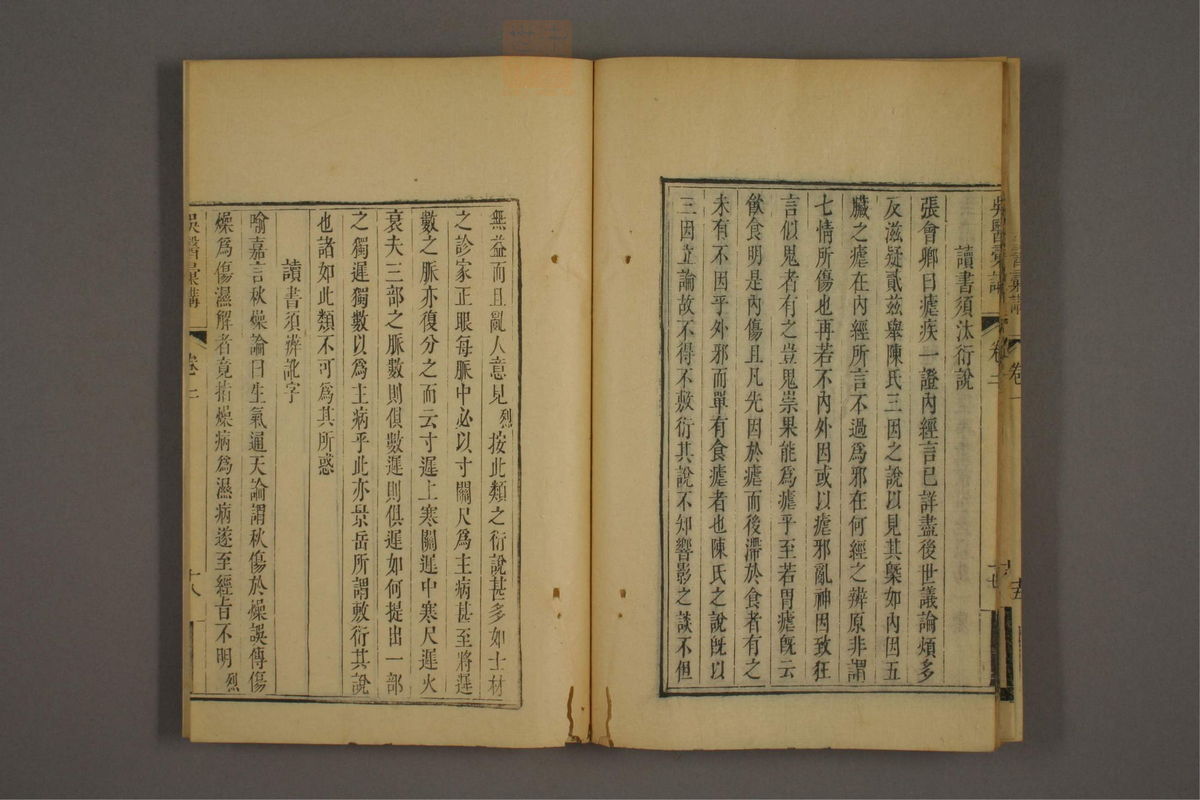 讀書須汰衍說
張會卿曰瘧疾一證內經言已詳盡後世議論煩多
反滋疑貳茲舉陳氏三因之說以見其槩如內因五
臟之瘧在內經所言不過為邪在何經之辨原非謂
七情所傷也再若不內外因或以瘧邪亂神因致狂
言似鬼者有之豈鬼祟果能為瘧乎至若胃瘧旣云
飲食明是內傷且凡先因於瘧而後滯於食者有之
未有不因乎外邪而單有食瘧者也陳氏之說旣以
三因立論故不得不敷衍其說不知響影之談不但
無益而且亂人意見烈按此類之衍說甚多如士材
之診家正眼每脈中必以寸關尺為主病甚至將遲
數之脈亦復分之而云寸遲上寒關遲中寒尺遲火
衰夫三部之脈數則俱數遲則俱遲如何提出一部
之獨遲獨數以為主病乎此亦景岳所謂敷衍其說
也諸如此類不可為其所惑
讀書須辨訛字
喻嘉言秋燥論曰生氣通天論謂秋傷於燥誤傳傷
燥為傷濕解者竟指燥病為濕病遂至經旨不明烈
吳醫彙講
卷二
十八